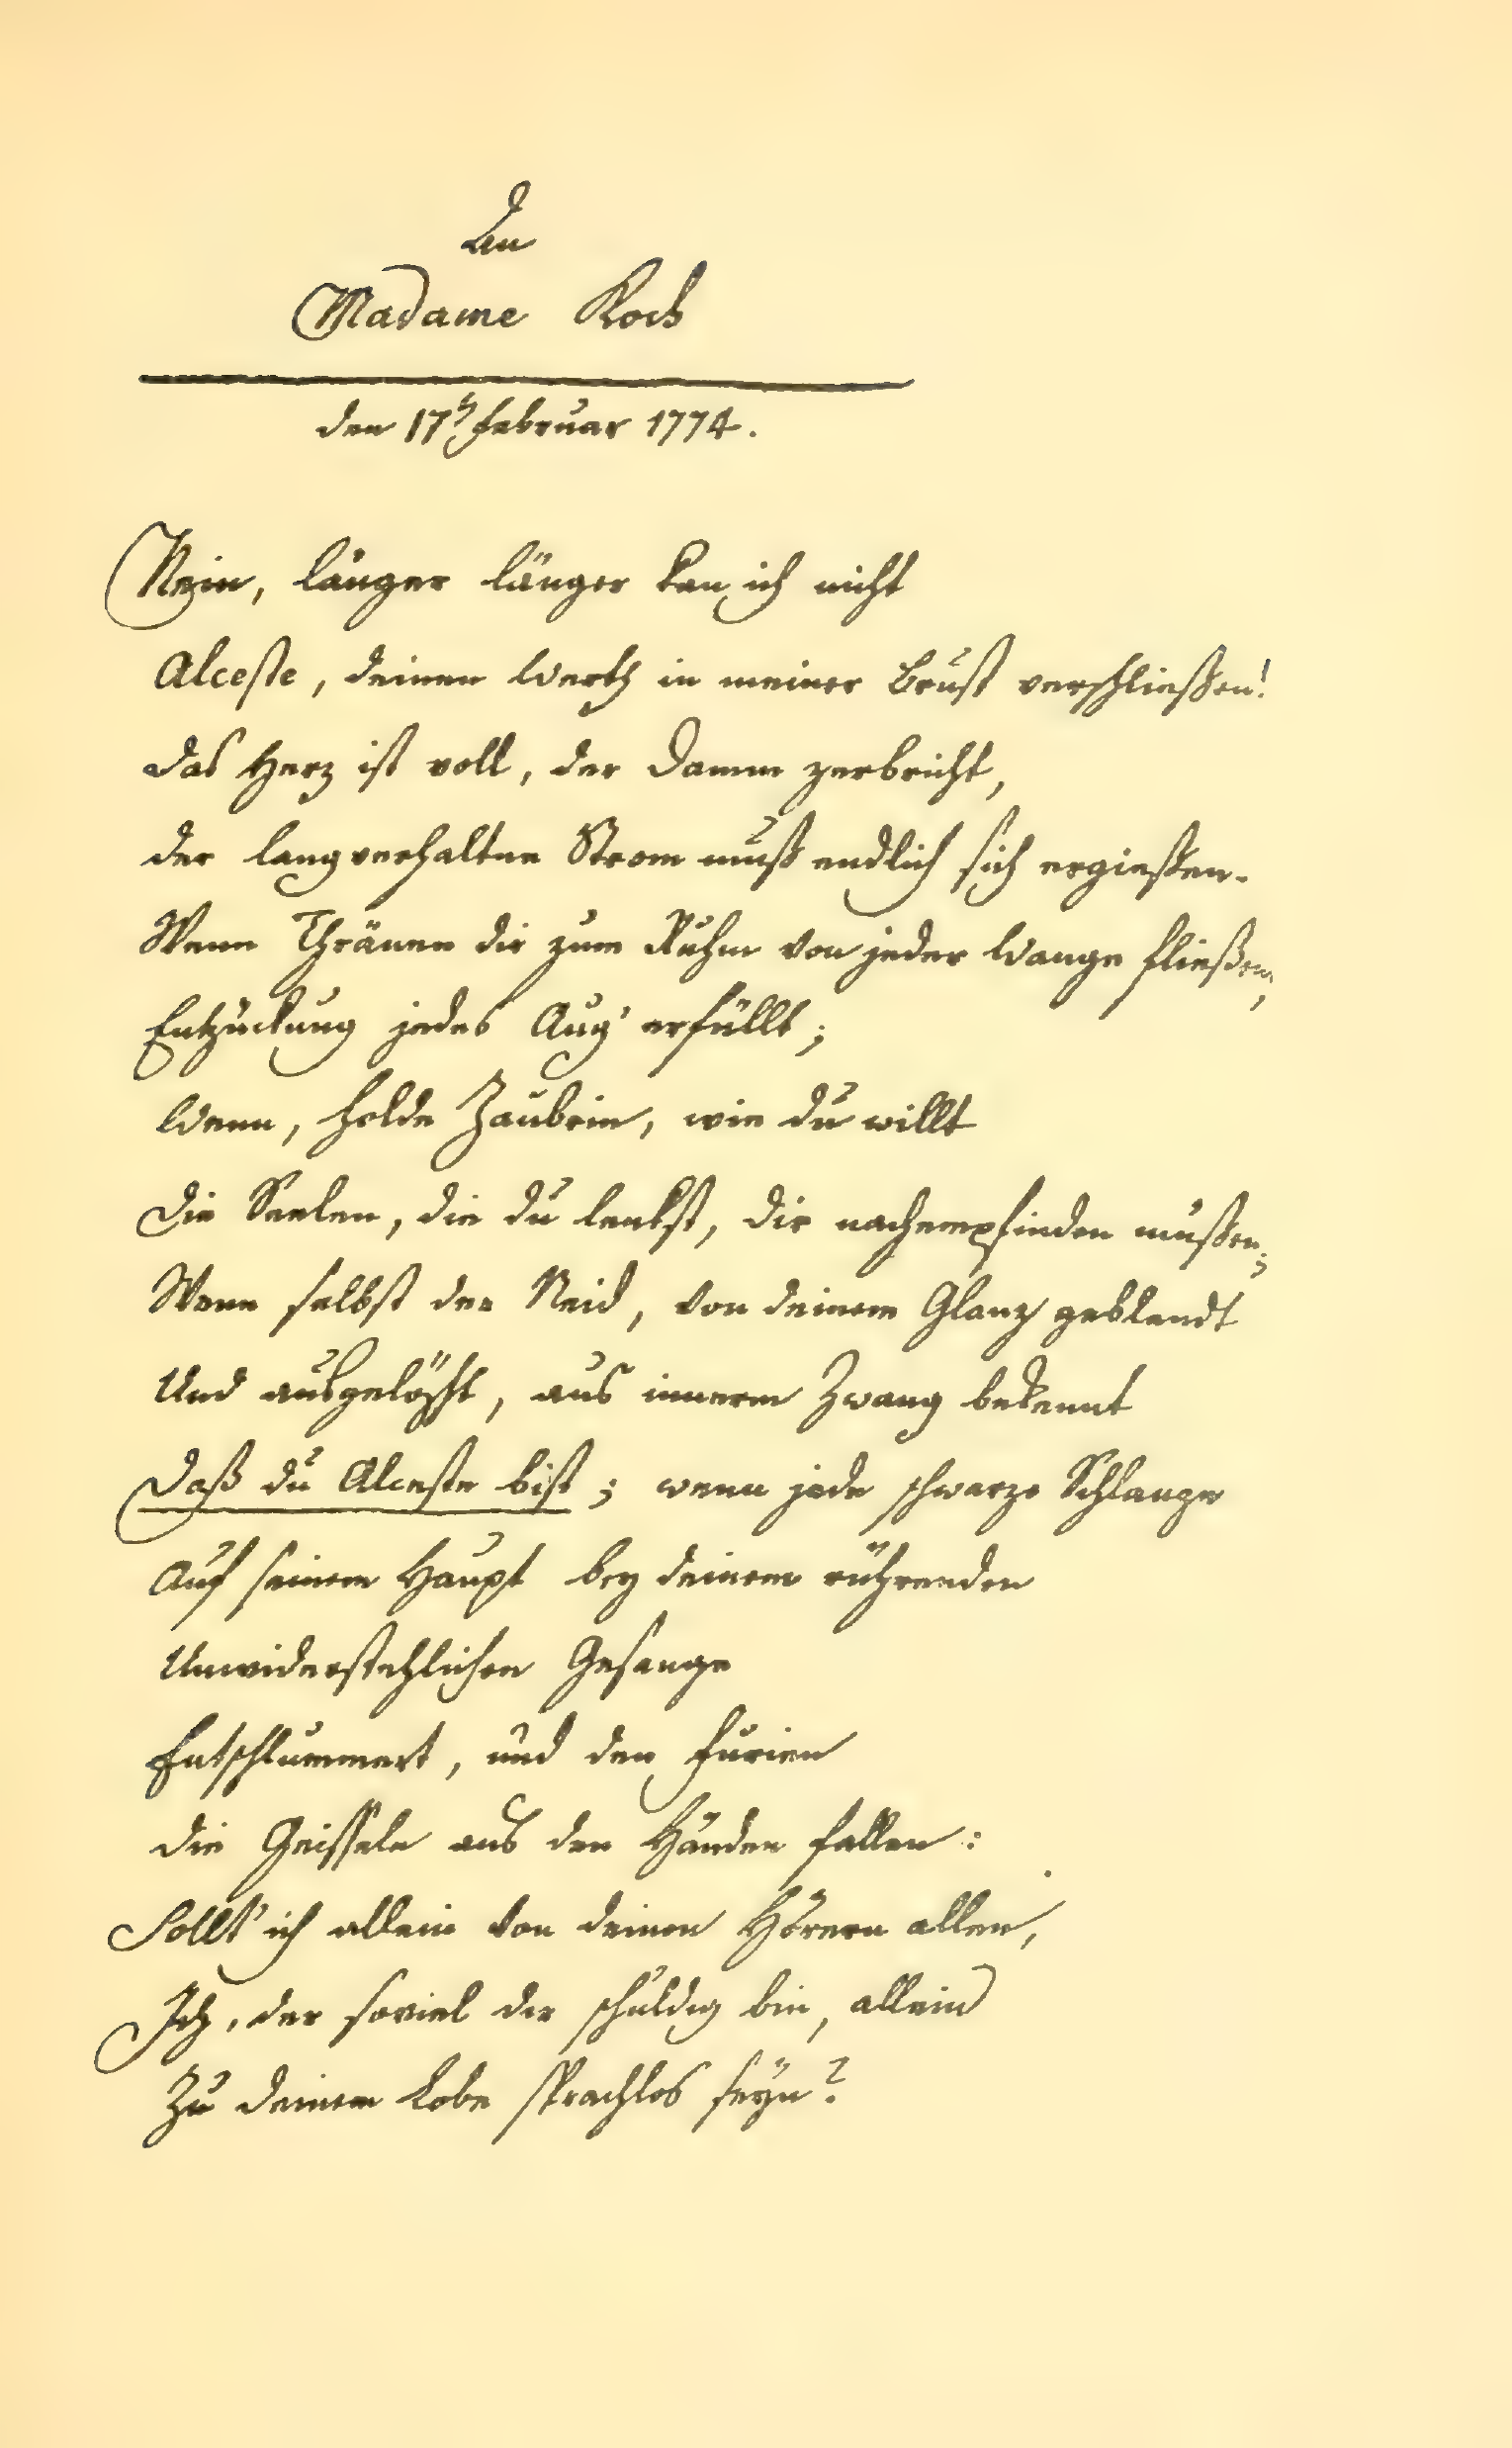 An
Madame Koch
den 17ḥ Februar 1774.
Nein, länger länger kan ich nicht
Alceste, deinen Werth in meiner Brust verschließen!
Das Herz ist voll, der Damm zerbricht,
der lang verhaltne Strom muß endlich sich ergießen.
Wenn Thränen dir zum Ruhm von jeder Wange fließen,
Entzückung jedes Aug' erfüllt;
Wenn, holde Zaubrin, wie du willt
Die Seelen, die du lenkst, dir nachempfinden müßen;
Wenn selbst der Neid, von deinem Glanz geblendt
Und ausgelöscht, aus innerm Zwang bekennt
Daß du Alceste bist; wenn jede schwarze Schlange
Auf seinem Haupt bey deinem rührenden
Unwiderstehlichen Gesange
Entschlummert, und den Furien
die Geisseln aus den Händen fallen:
Sollt' ich allein von deinen Hörern allen,
Ich, der soviel dir schuldig bin, allein
Zu deinem Lobe sprachlos seyn?